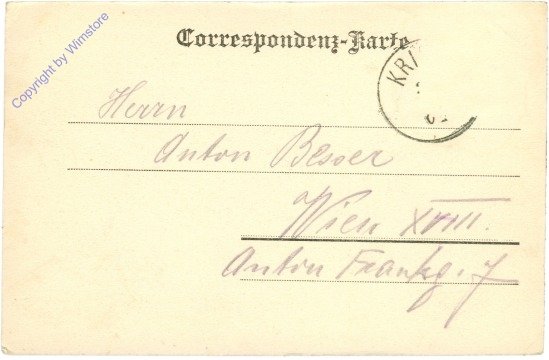 Correspondenz-Karte
KR
Copyright by Wimstore
Herrn
Anton Besser
Wien XVIII.
Anton Frankg. 7